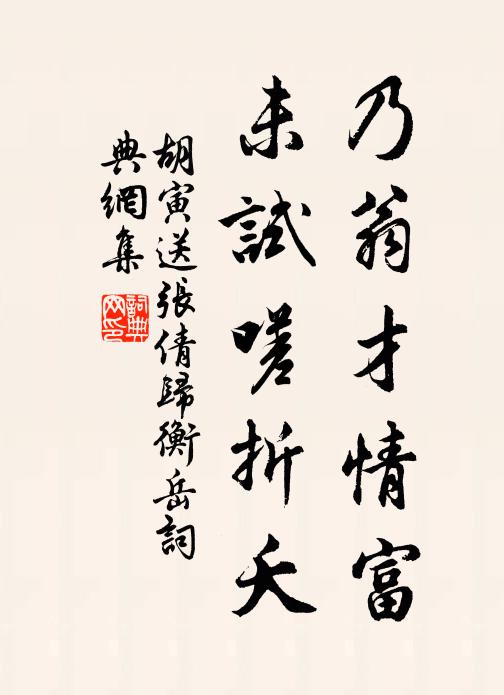 乃翁才情富
未試嗟折夭
胡寅送張倩歸衡岳詞
典網集
詞典網印